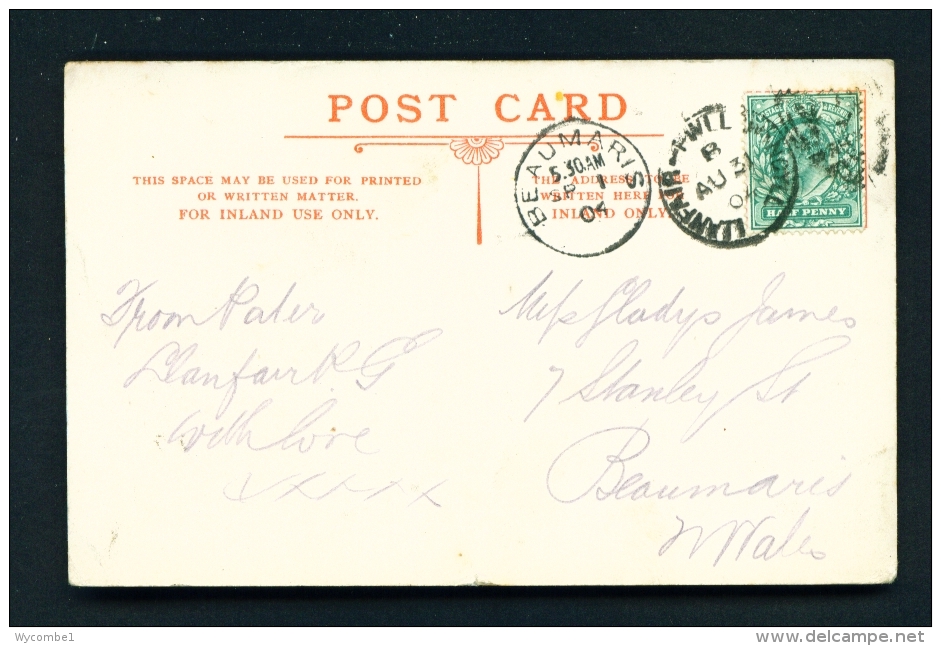 POST CARD
THIS SPACE MAY BE USED FOR PRINTED
OR WRITTEN MATTER.
FOR INLAND USE ONLY.
THE ADDRESS TO BE
WRITTEN HERE
INLAND ONLY.
BEAUMARIS
5.30AM
SP 1
LLANFAIR-PWLL
B
AU 31
HALF PENNY
From Pater
Llanfair P. G
with love
xxxxx
Miss Gladys James
7 Stanley St
Beaumaris
N Wales
Wycombe1
delcampe.net